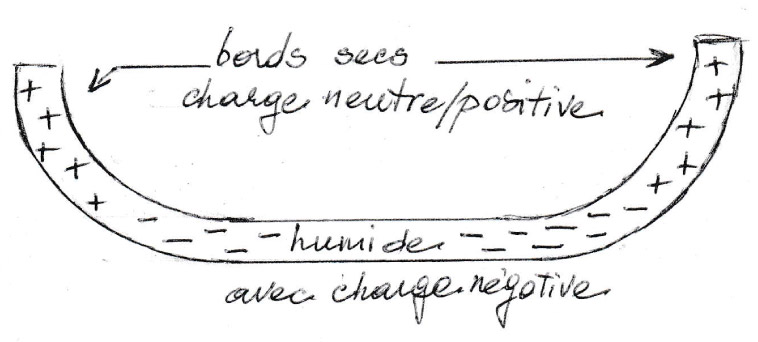 bords secs
charge neutre/positive
humide
avec charge négative